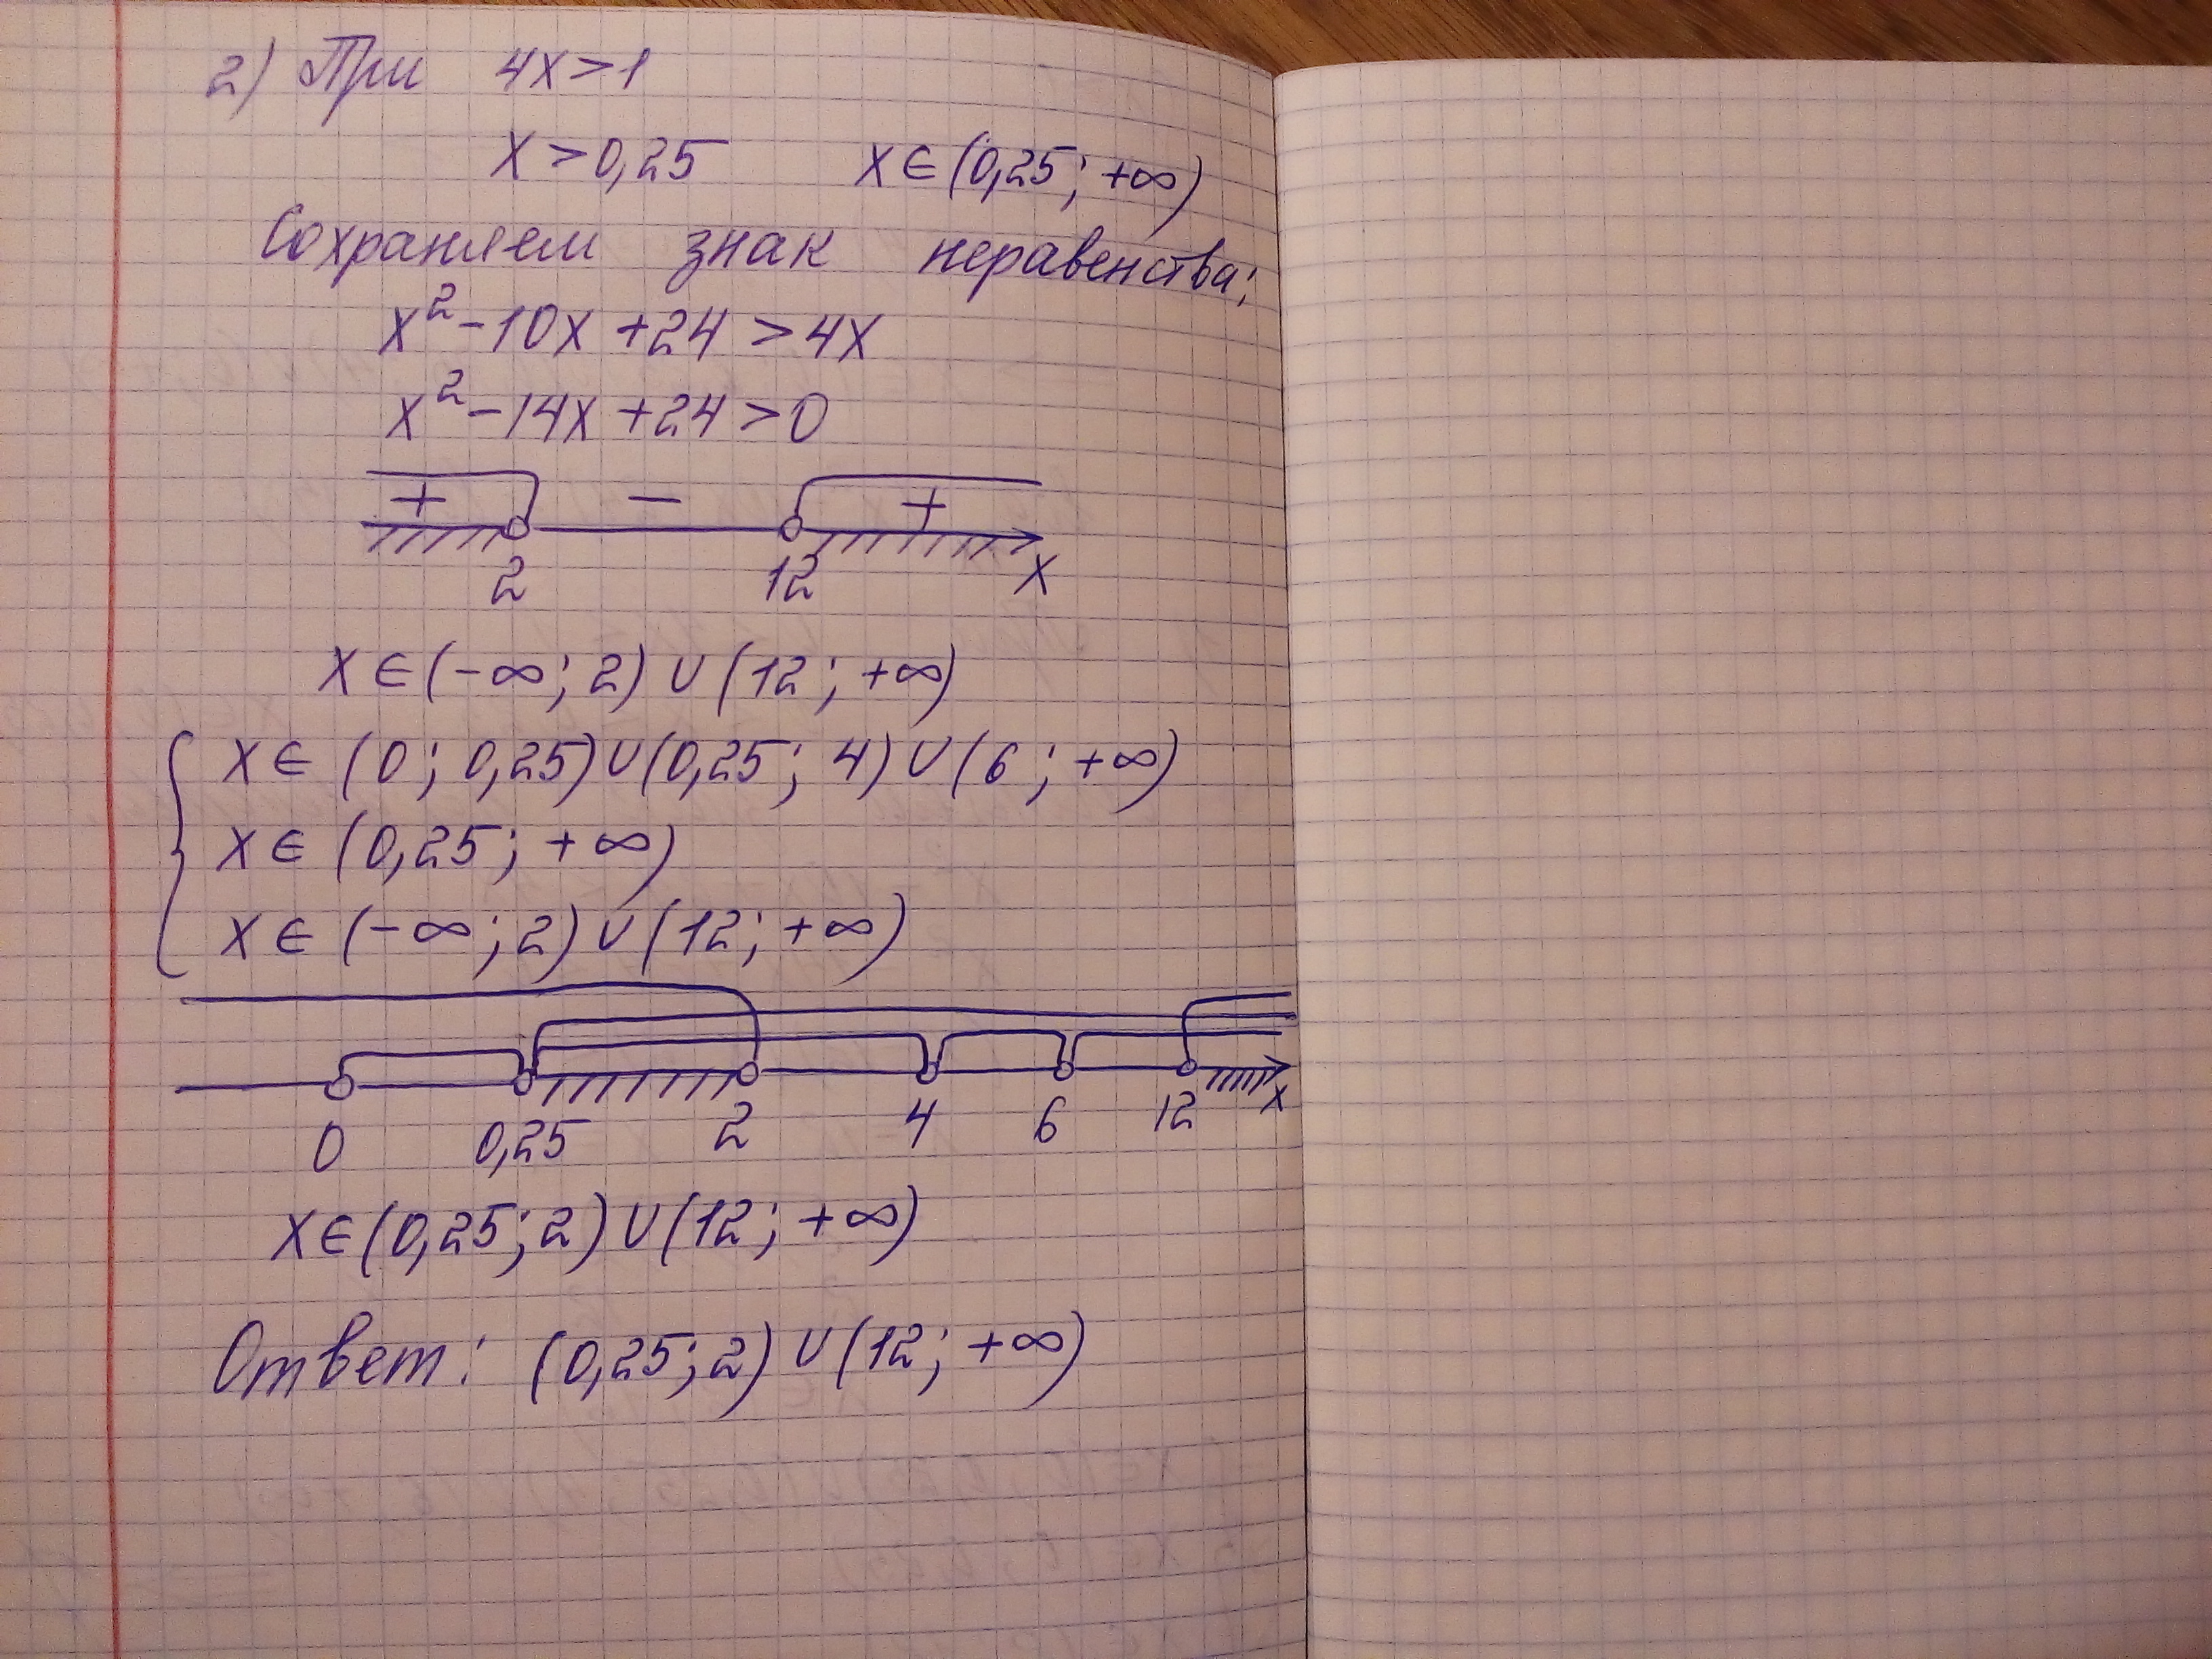 2) При 4x>1
x>0,25 x∈(0,25; +∞)
Сохраняем знак неравенства:
x²-10x+24>4x
x²-14x+24>0
+ - +
2 12 x
x∈(-∞; 2)∪(12; +∞)
x∈(0; 0,25)∪(0,25; 4)∪(6; +∞)
x∈(0,25; +∞)
x∈(-∞; 2)∪(12; +∞)
0 0,25 2 4 6 12 x
x∈(0,25; 2)∪(12; +∞)
Ответ: (0,25; 2)∪(12; +∞)